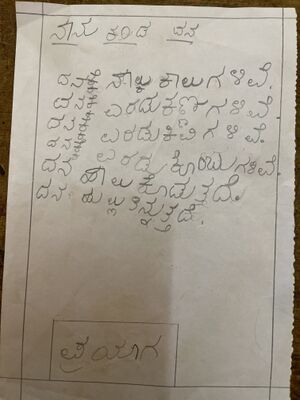 ನಾನು ಕಂಡ ದನ
ದನಕ್ಕೆ ನಾಲ್ಕು ಕಾಲುಗಳಿವೆ.
ದನಕ್ಕೆ ಎರಡು ಕಣ್ಣುಗಳಿವೆ.
ದನಕ್ಕೆ ಎರಡು ಕಿವಿಗಳಿವೆ.
ದನಕ್ಕೆ ಎರಡು ಕೊಂಬುಗಳಿವೆ.
ದನ ಹಾಲು ಕೊಡುತ್ತದೆ.
ದನ ಹುಲ್ಲು ತಿನ್ನುತ್ತದೆ.
ಪ್ರಯಾಗ